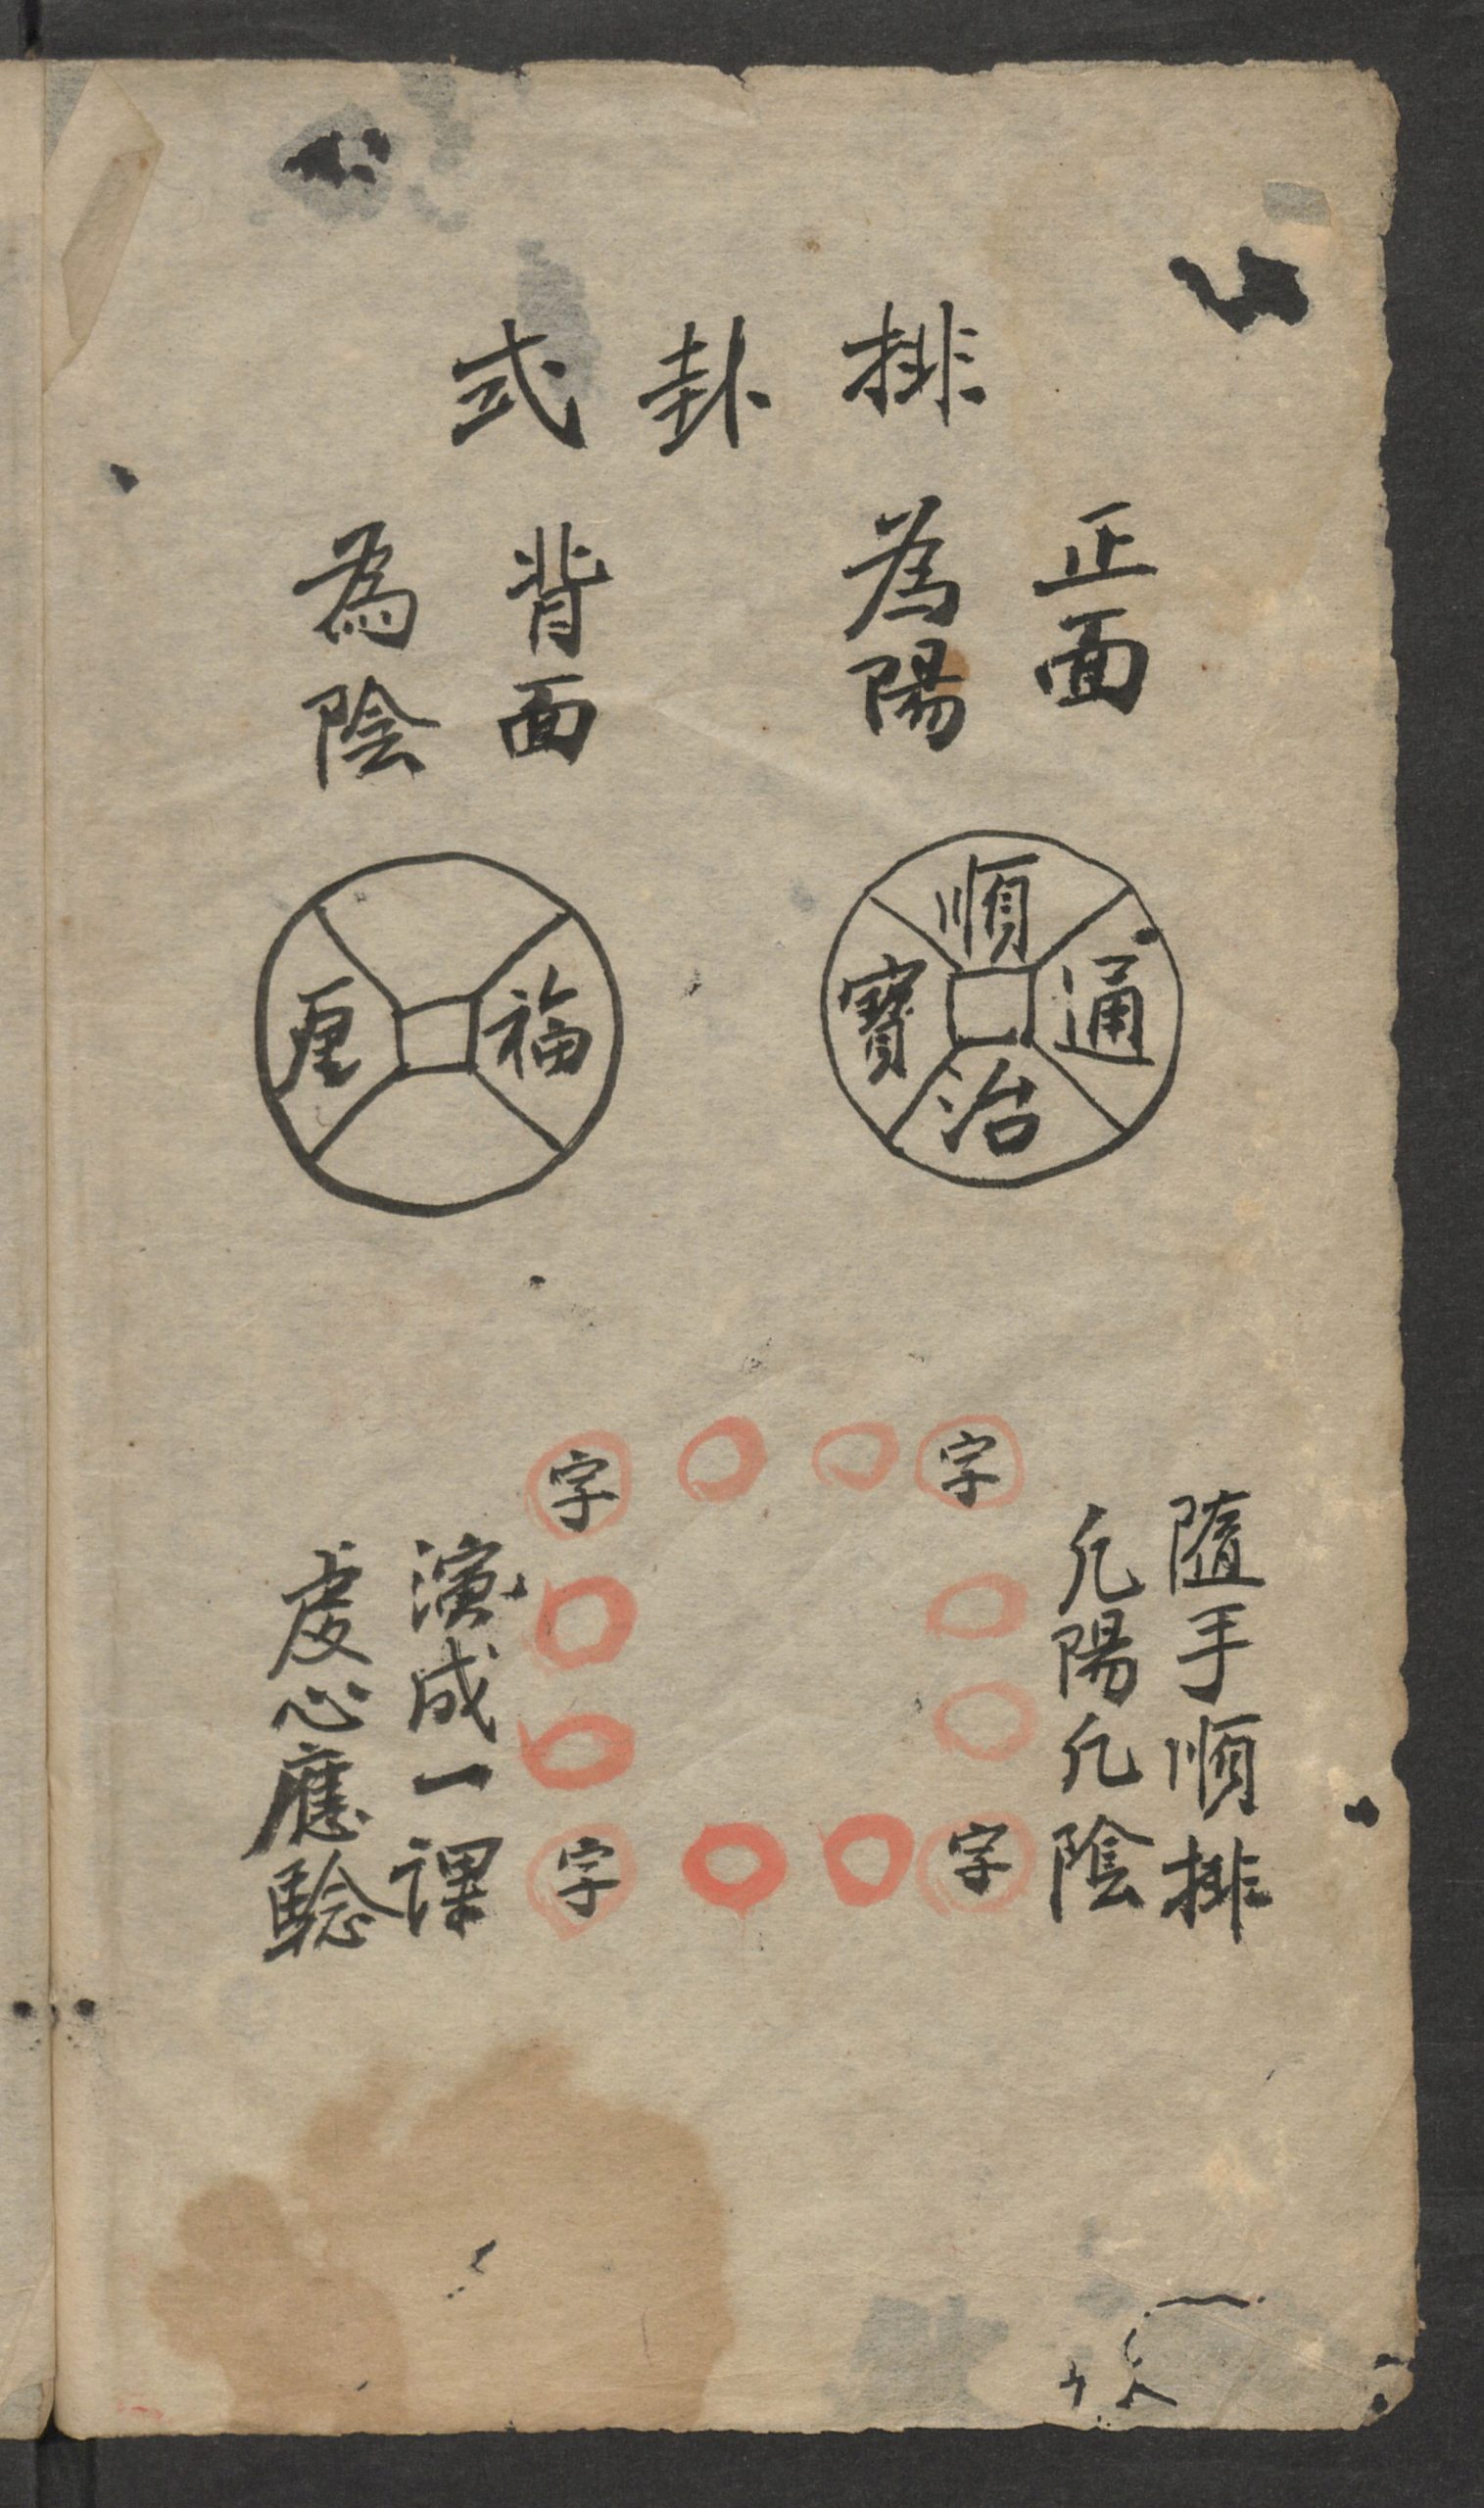 排卦式
正面
為陽
背面
為陰
順治通寶
福厘
隨手順排
凢陽凢陰
字 字
字 字
演成一課
虔心應騐